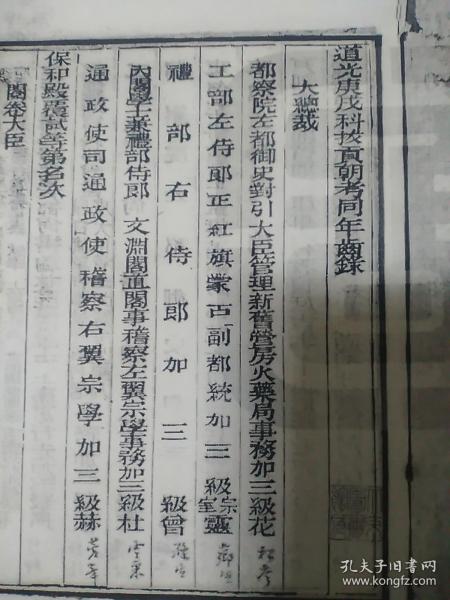 道光庚戌科拔貢朝考同年齒錄
大總裁
都察院左都御史對引大臣管理新舊營房火藥局事務加三級花
工部左侍郎正紅旗蒙古副都統加三級宗室靈
禮部右侍郎加三級曾
內閣學士兼禮部侍郎文淵閣直閣事稽察左翼宗學事務加三級杜
通政使司通政使稽察右翼宗學加三級赫
保和殿覆試等第名次
閱卷大臣
孔夫子旧书网